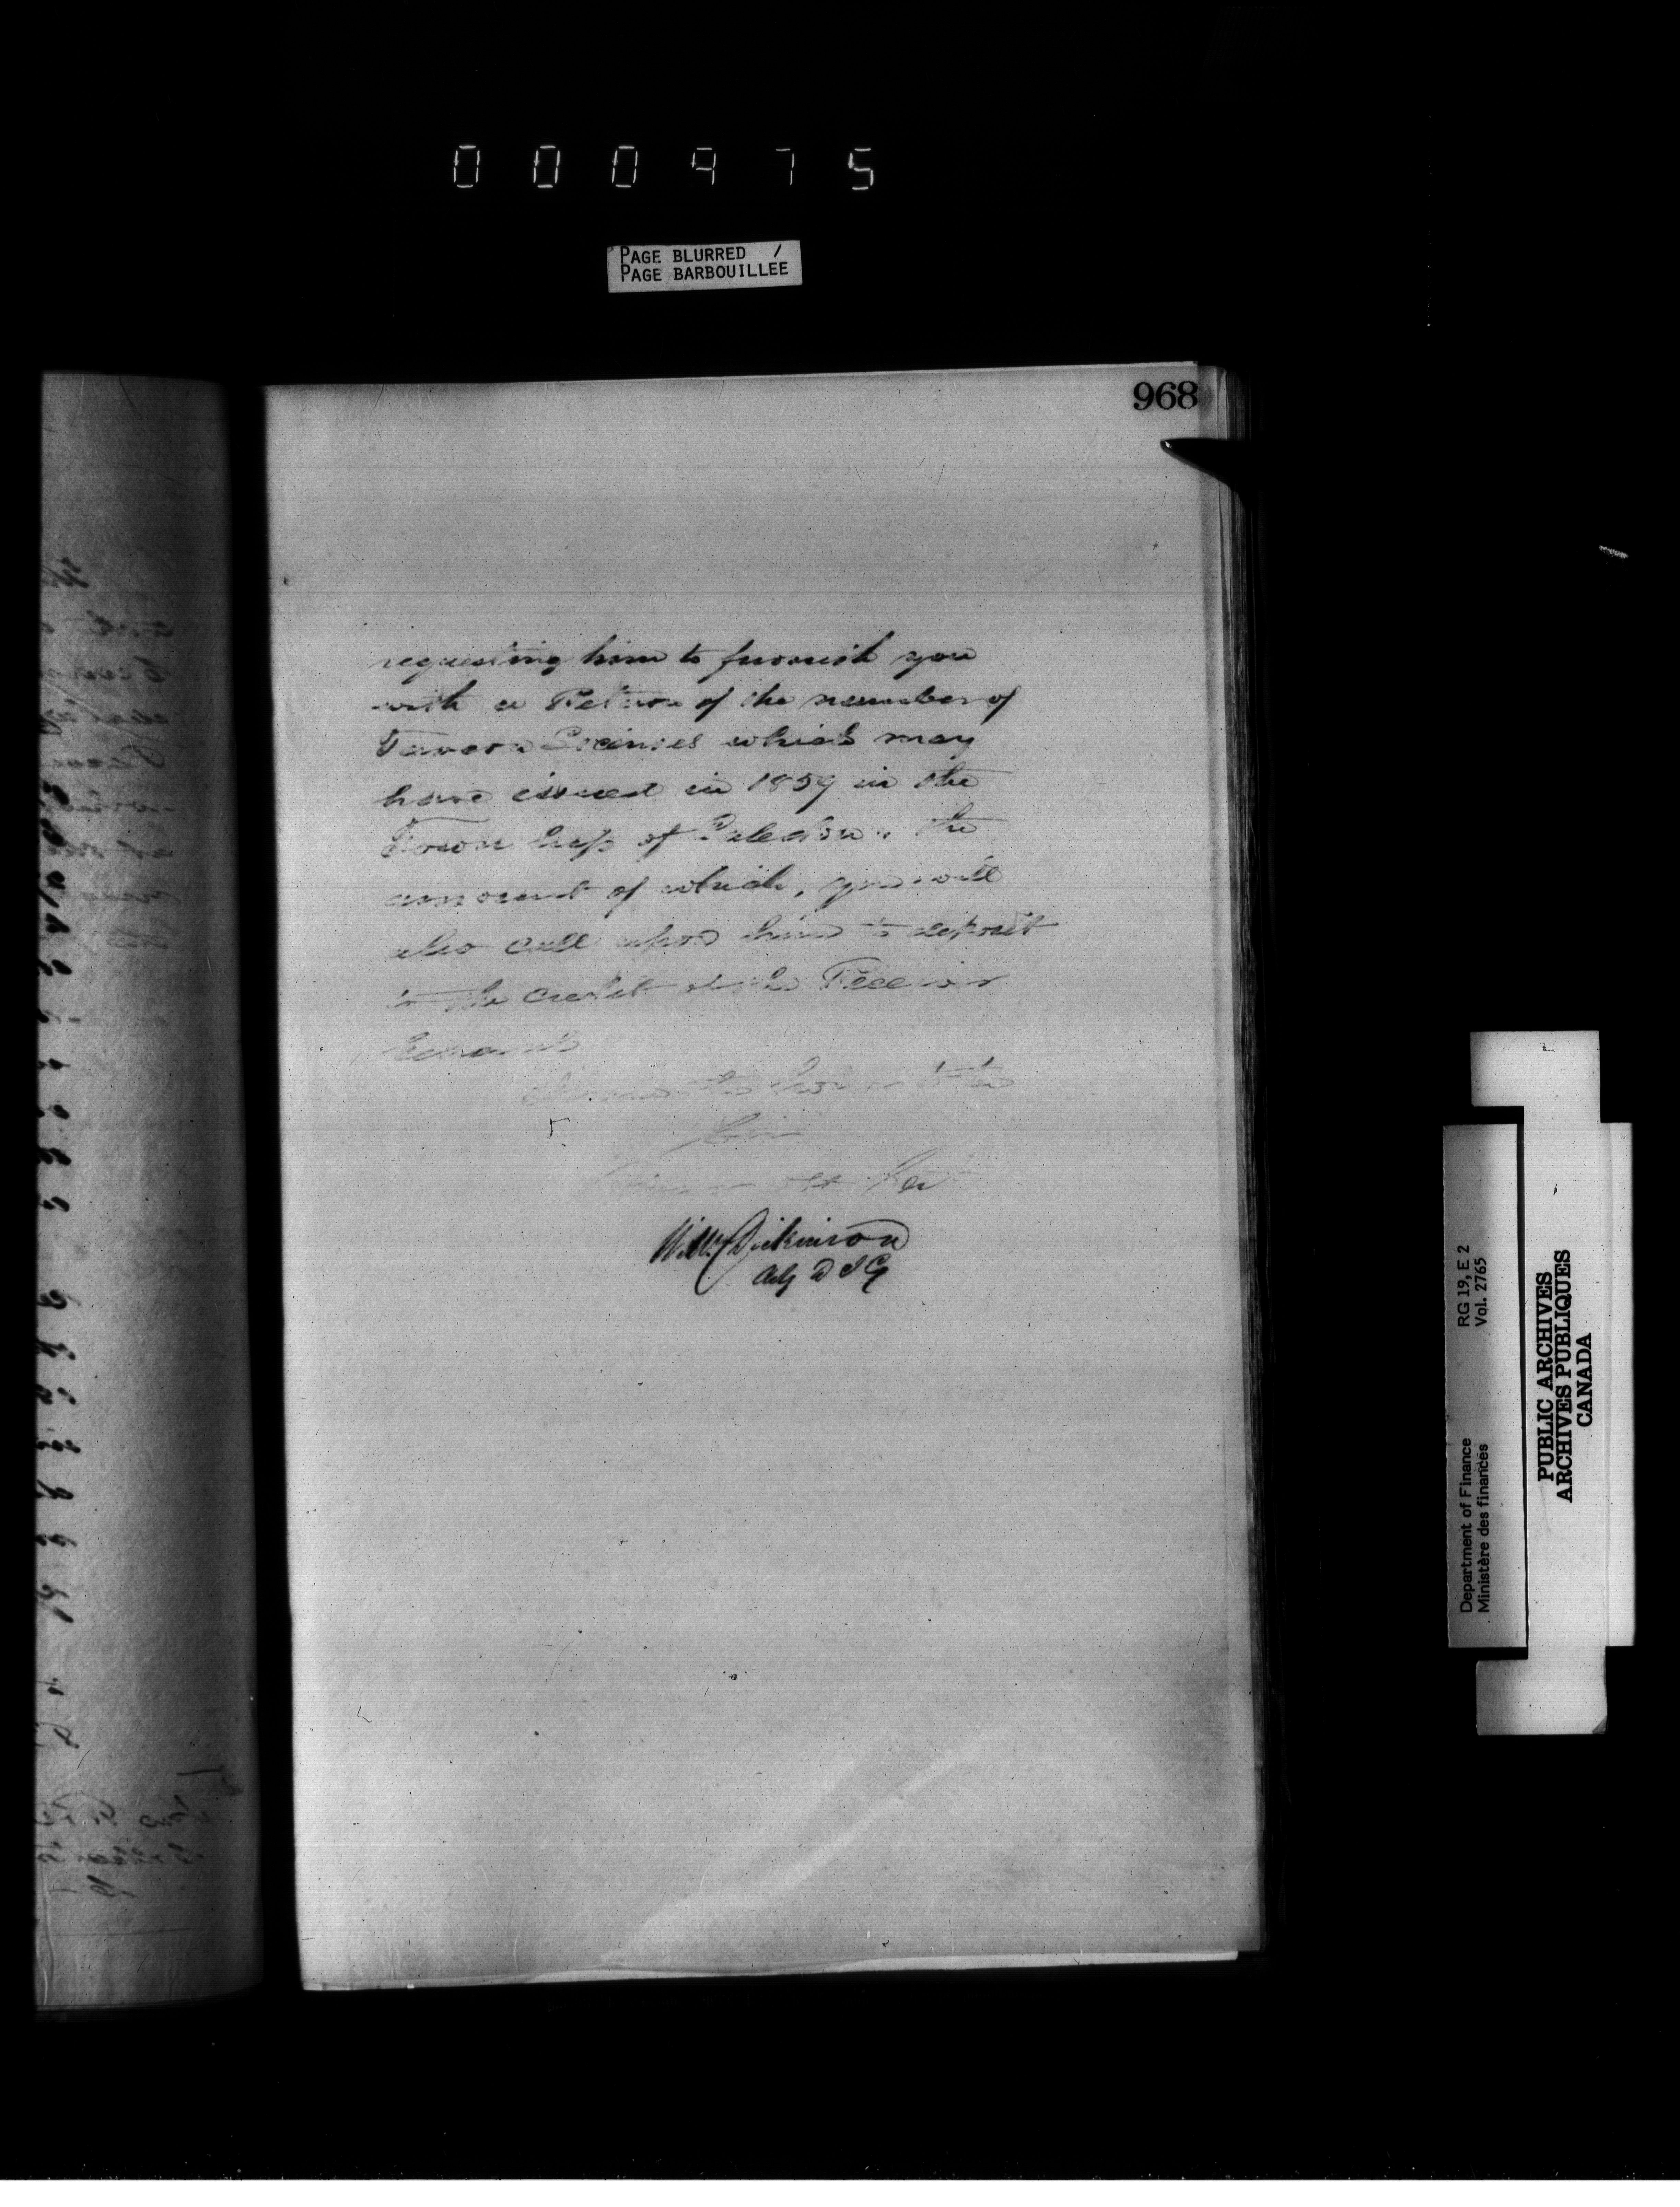 000975
PAGE BLURRED /
PAGE BARBOUILLEE
968
requesting him to furnish you
with a Return of the number of
Tavern Licenses which may
have issued in 1859 in the
Township of Caledon the
amount of which, you will
also call upon him to deposit
to the credit of the Receiver
General
I have the honor to be
Sir
Your obt Servt
Wm Dickinson
Actg D I G
Department of Finance RG 19, E 2
Ministère des finances Vol. 2765
PUBLIC ARCHIVES
ARCHIVES PUBLIQUES
CANADA